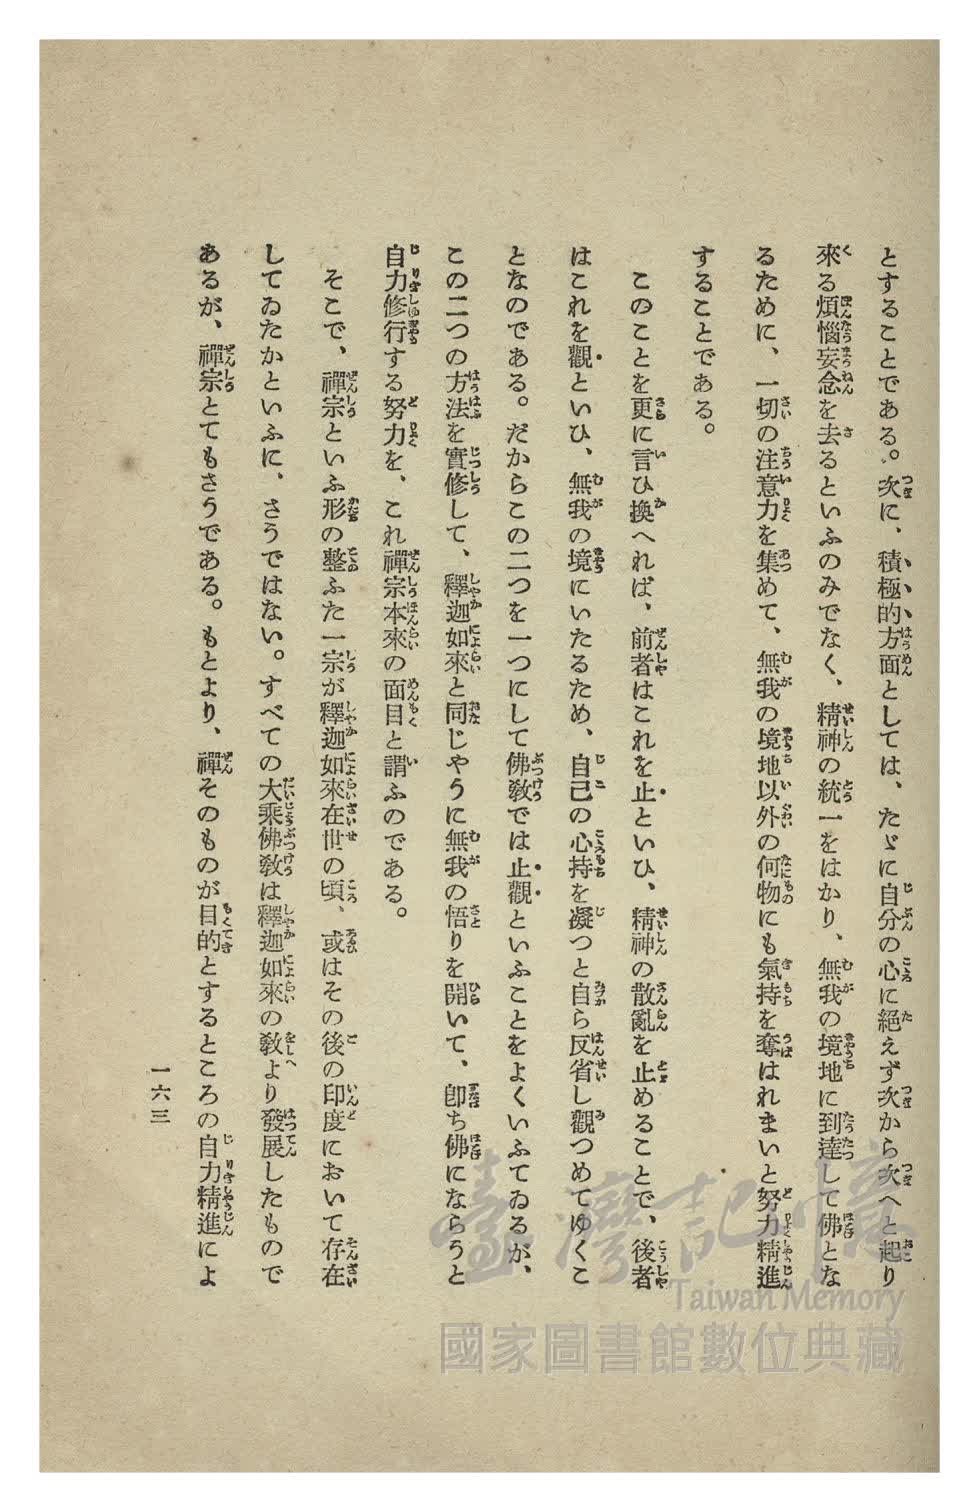 とすることである。次に、積極的方面としては、たゞに自分の心に絶えず次から次へと起り
來る煩惱妄念を去るといふのみでなく、精神の統一をはかり、無我の境地に到達して佛とな
るために、一切の注意力を集めて、無我の境地以外の何物にも氣持を奪はれまいと努力精進
することである。
このことを更に言ひ換へれば、前者はこれを止といひ、精神の散亂を止めることで、後者
はこれを觀といひ、無我の境にいたるため、自己の心持を凝つと自ら反省し觀つめてゆくこ
となのである。だからこの二つを一つにして佛敎では止觀といふことをよくいふてゐるが、
この二つの方法を實修して、釋迦如來と同じやうに無我の悟りを開いて、卽ち佛にならうと
自力修行する努力を、これ禪宗本來の面目と謂ふのである。
そこで、禪宗といふ形の整ふた一宗が釋迦如來在世の頃、或はその後の印度において存在
してゐたかといふに、さうではない。すべての大乘佛敎は釋迦如來の敎より發展したもので
あるが、禪宗とてもさうである。もとより、禪そのものが目的とするところの自力精進によ
一六三
臺灣記憶
Taiwan Memory
國家圖書館數位典藏